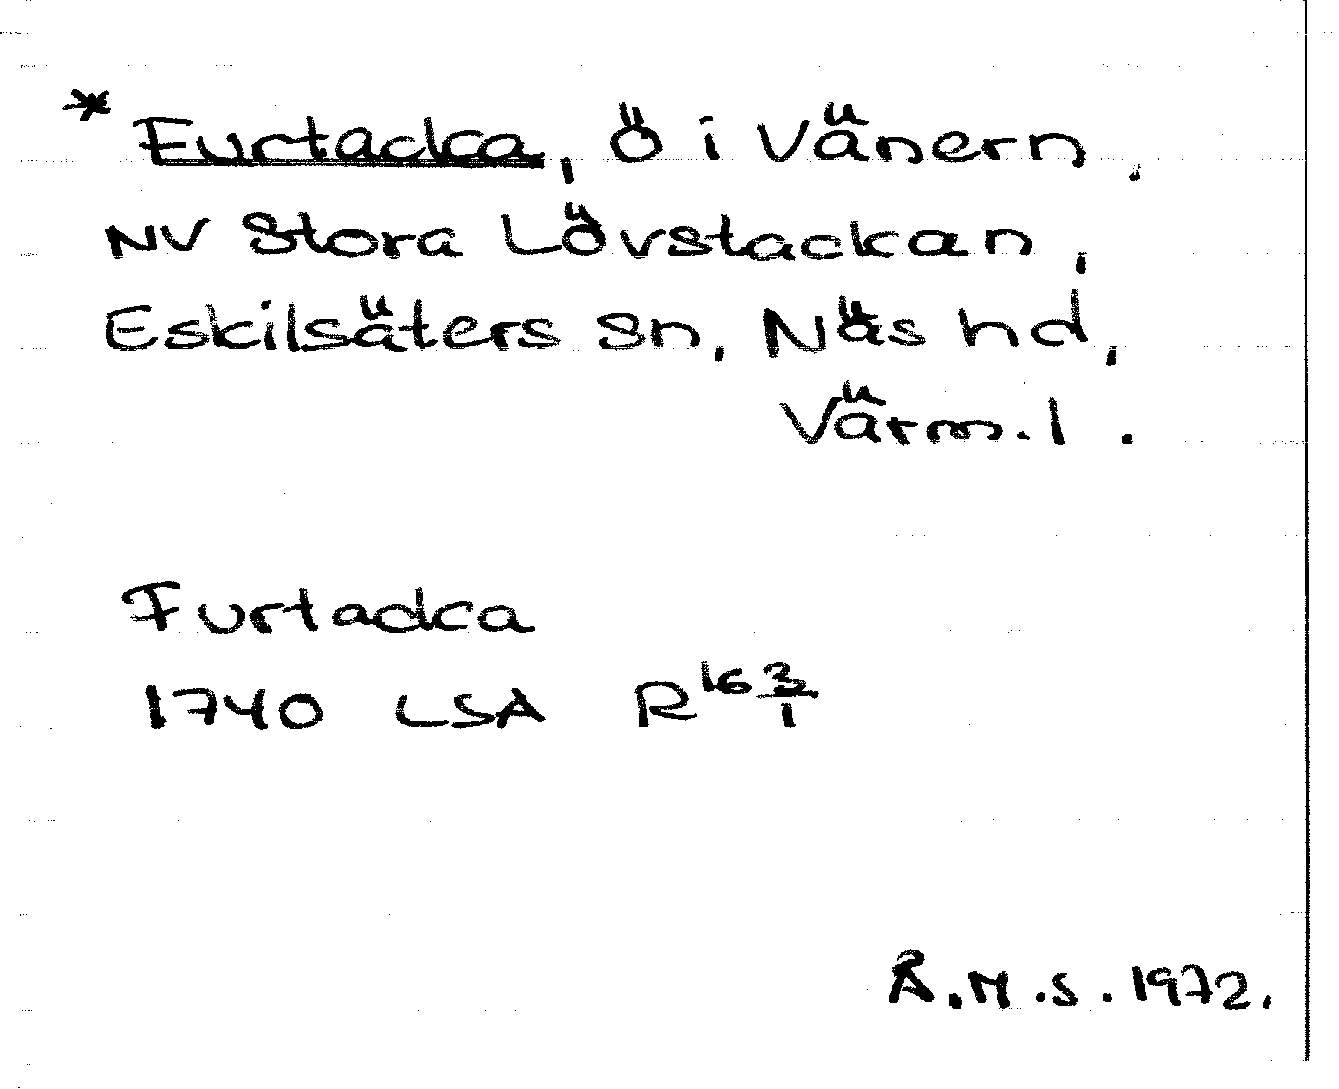 * Furtacka, Ö i Vänern,
NV Stora Lövstackan,
Eskilsäters sn, Näs hd,
Värml.
Furtacka
1740 LSA R16 3/1
Å.M.S. 1972.